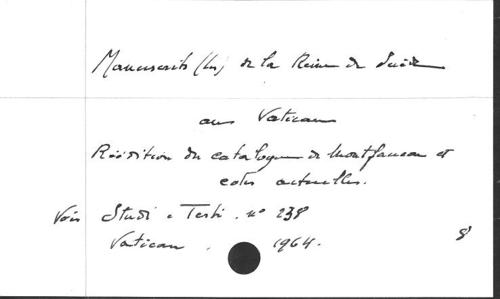 Manuscrits (les) de la Reine de Suède
au Vatican
Réédition du catalogue de Montfaucon et
cotes actuelles.
Voir Studi e Testi. n° 238
Vatican. 1964. 8